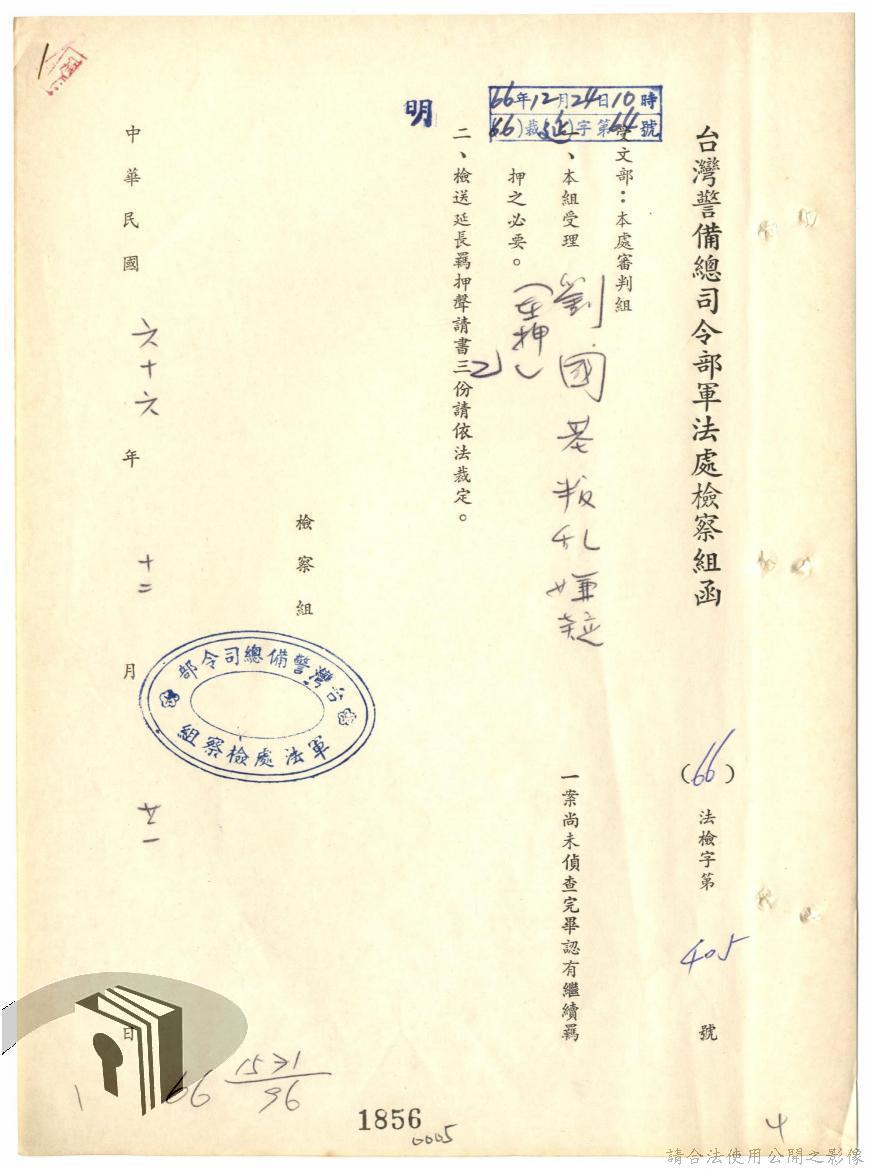 台灣警備總司令部軍法處檢察組函
(66)法檢字第405號
66年12月24日10時
(66)裁延字第64號
受文部：本處審判組
一、本組受理劉國基叛乱嫌疑一案尚未偵查完畢認有繼續羈
(在押)
押之必要。
二、檢送延長羈押聲請書三份請依法裁定。
明
檢察組
台灣警備總司令部
軍法處檢察組
中華民國六十六年十二月廿一日
66 1531/96
1856
0005
4
請合法使用公開之影像